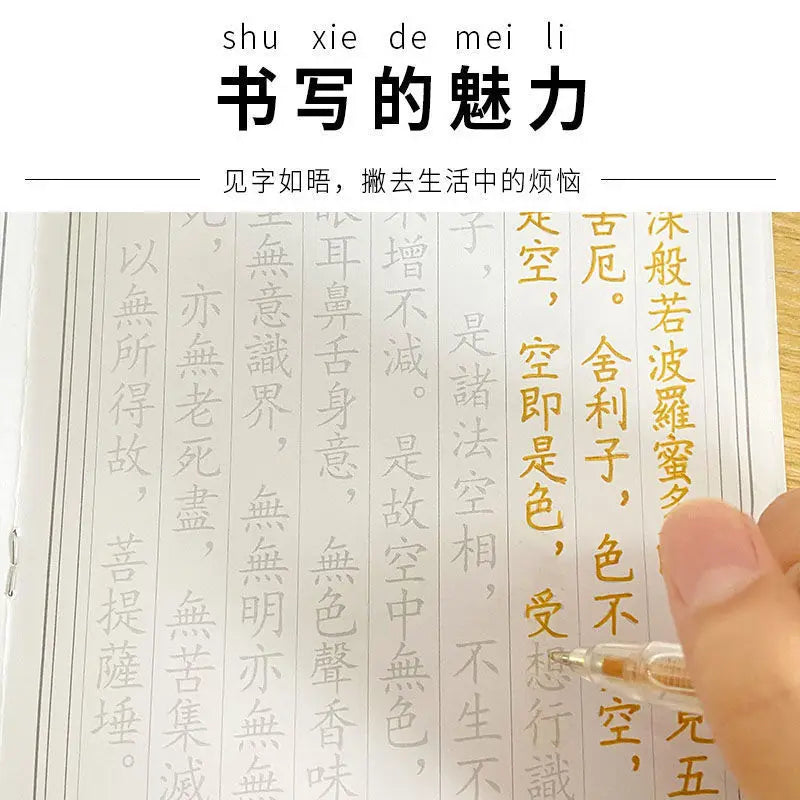 shu xie de mei li
书写的魅力
见字如晤，撇去生活中的烦恼
深般若波羅蜜多 五
苦厄。舍利子，色不 空，
是空，空即是色，受想行識
子，是諸法空相，不生不
不增不減。是故空中無色，
眼耳鼻舌身意，無色聲香味
至無意識界，無無明亦無無
死，亦無老死盡，無苦集滅
以無所得故，菩提薩埵。